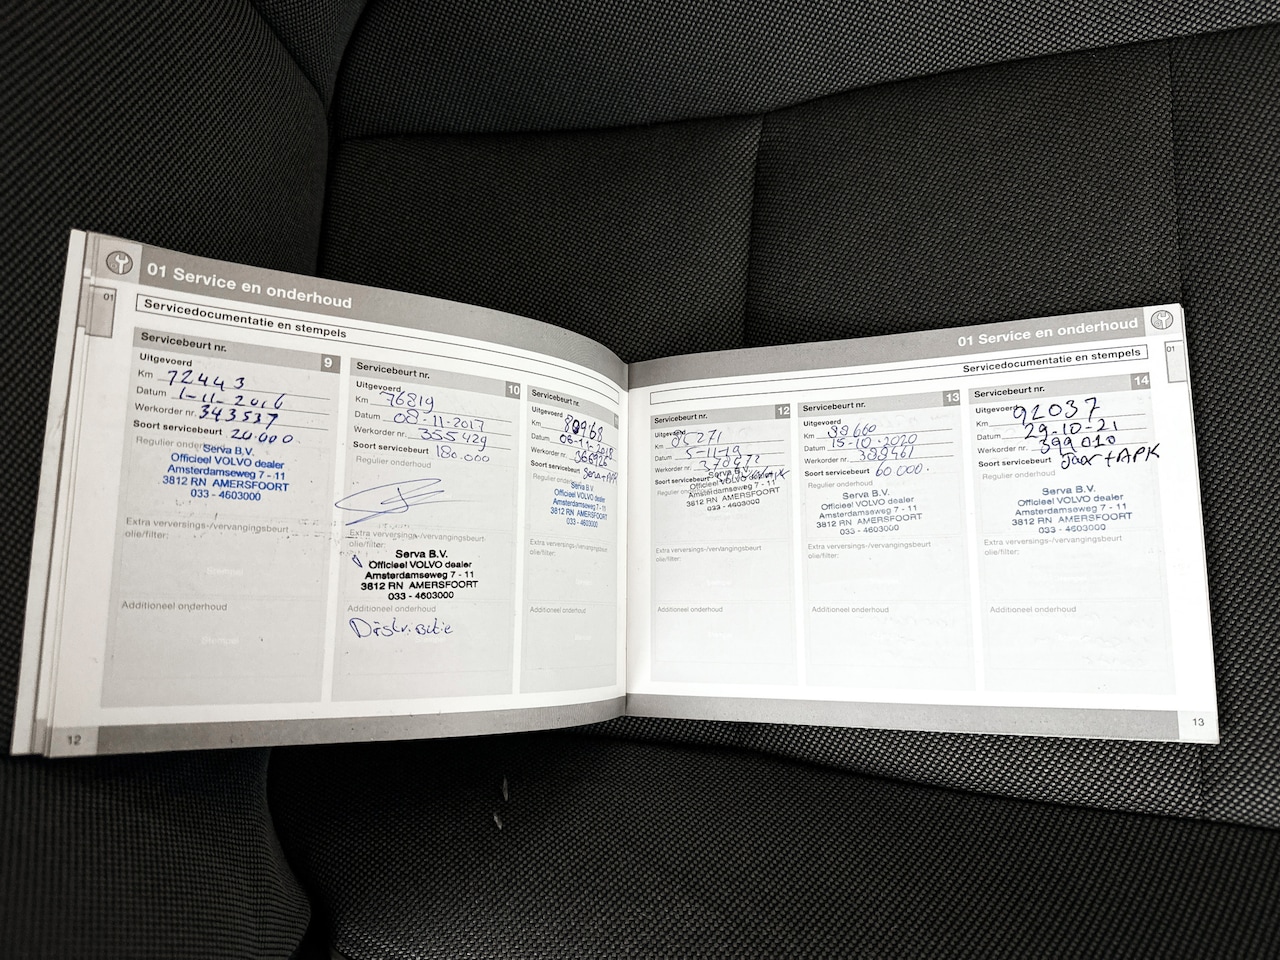 01 Service en onderhoud
01
Servicedocumentatie en stempels
Servicebeurt nr. 9
Uitgevoerd
Km 72443
Datum 1-11-2016
Werkorder nr. 343537
Soort servicebeurt 20.000
Regulier onderhoud
Serva B.V.
Officieel VOLVO dealer
Amsterdamseweg 7 - 11
3812 RN AMERSFOORT
033 - 4603000
Extra verversings-/vervangingsbeurt
olie/filter:
Stempel
Additioneel onderhoud
Stempel
12
Servicebeurt nr. 10
Uitgevoerd
Km 76819
Datum 08-11-2017
Werkorder nr. 355429
Soort servicebeurt 180.000
Regulier onderhoud
Extra verversings-/vervangingsbeurt
olie/filter:
Serva B.V.
Officieel VOLVO dealer
Amsterdamseweg 7 - 11
3812 RN AMERSFOORT
033 - 4603000
Additioneel onderhoud
Distributie
Servicebeurt nr.
Uitgevoerd
Km 80968
Datum 06-11-2018
Werkorder nr. 366926
Soort servicebeurt
Regulier onderhoud
Serva B.V.
Officieel VOLVO dealer
Amsterdamseweg 7 - 11
3812 RN AMERSFOORT
033 - 4603000
Extra verversings-/vervangingsbeurt
olie/filter:
Additioneel onderhoud
01 Service en onderhoud
01
Servicedocumentatie en stempels
Servicebeurt nr. 12
Uitgevoerd
Km 85271
Datum 5-11-19
Werkorder nr.
Soort servicebeurt
Regulier onderhoud
Serva B.V.
Officieel VOLVO dealer
Amsterdamseweg 7 - 11
3812 RN AMERSFOORT
033 - 4603000
Extra verversings-/vervangingsbeurt
olie/filter:
Additioneel onderhoud
Servicebeurt nr. 13
Uitgevoerd
Km 88660
Datum 15-10-2020
Werkorder nr. 388461
Soort servicebeurt 60 000.
Regulier onderhoud
Serva B.V.
Officieel VOLVO dealer
Amsterdamseweg 7 - 11
3812 RN AMERSFOORT
033 - 4603000
Extra verversings-/vervangingsbeurt
olie/filter:
Additioneel onderhoud
Servicebeurt nr. 14
Uitgevoerd
Km 92037
Datum 29-10-21
Werkorder nr. 399010
Soort servicebeurt Jaar + APK
Regulier onderhoud
Serva B.V.
Officieel VOLVO dealer
Amsterdamseweg 7 - 11
3812 RN AMERSFOORT
033 - 4603000
Extra verversings-/vervangingsbeurt
olie/filter:
Additioneel onderhoud
13